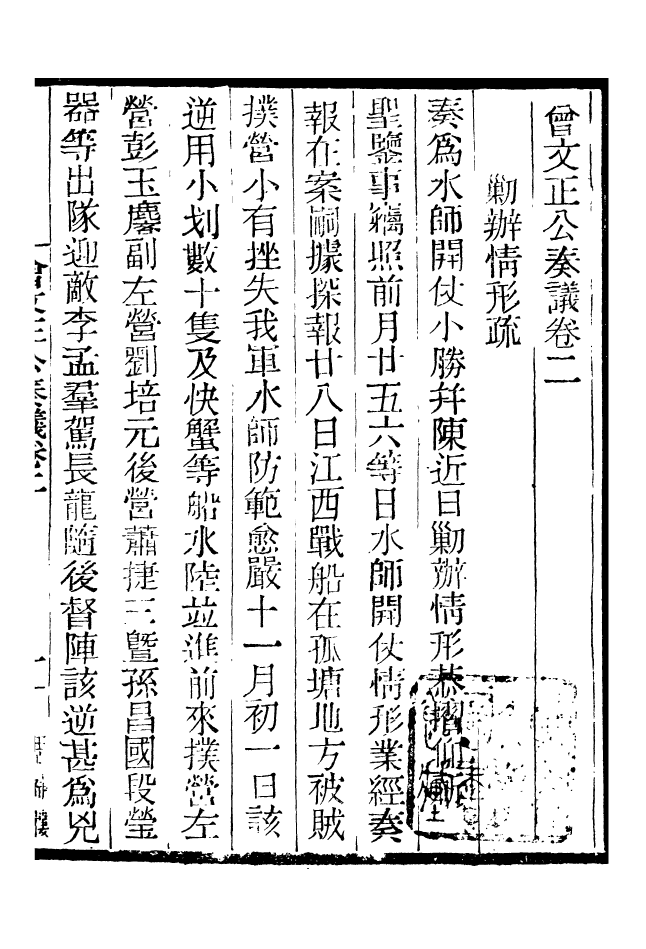 曾文正公奏議卷二
勦辦情形疏
奏爲水師開仗小勝幷陳近日勦辦情形恭摺仰祈
聖鑒事竊照前月廿五六等日水師開仗情形業經奏
報在案嗣據探報廿八日江西戰船在孤塘地方被賊
撲營小有挫失我軍水師防範愈嚴十一月初一日該
逆用小划數十隻及快蟹等船水陸並進前來撲營左
營彭玉麐副左營劉培元後營蕭捷三暨孫昌國段瑩
器等出隊迎敵李孟羣駕長龍隨後督陣該逆甚爲兇
曾文正公奏議卷二